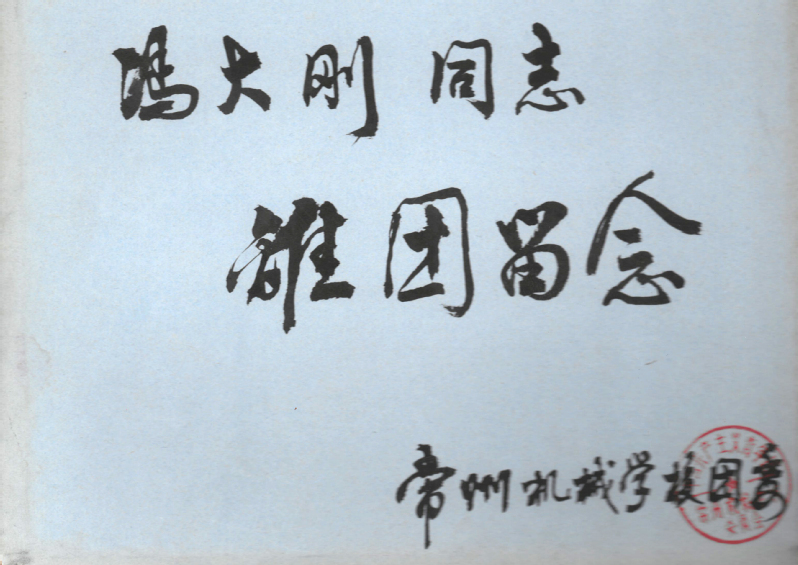 冯大刚 同志
离团留念
常州机械学校团委